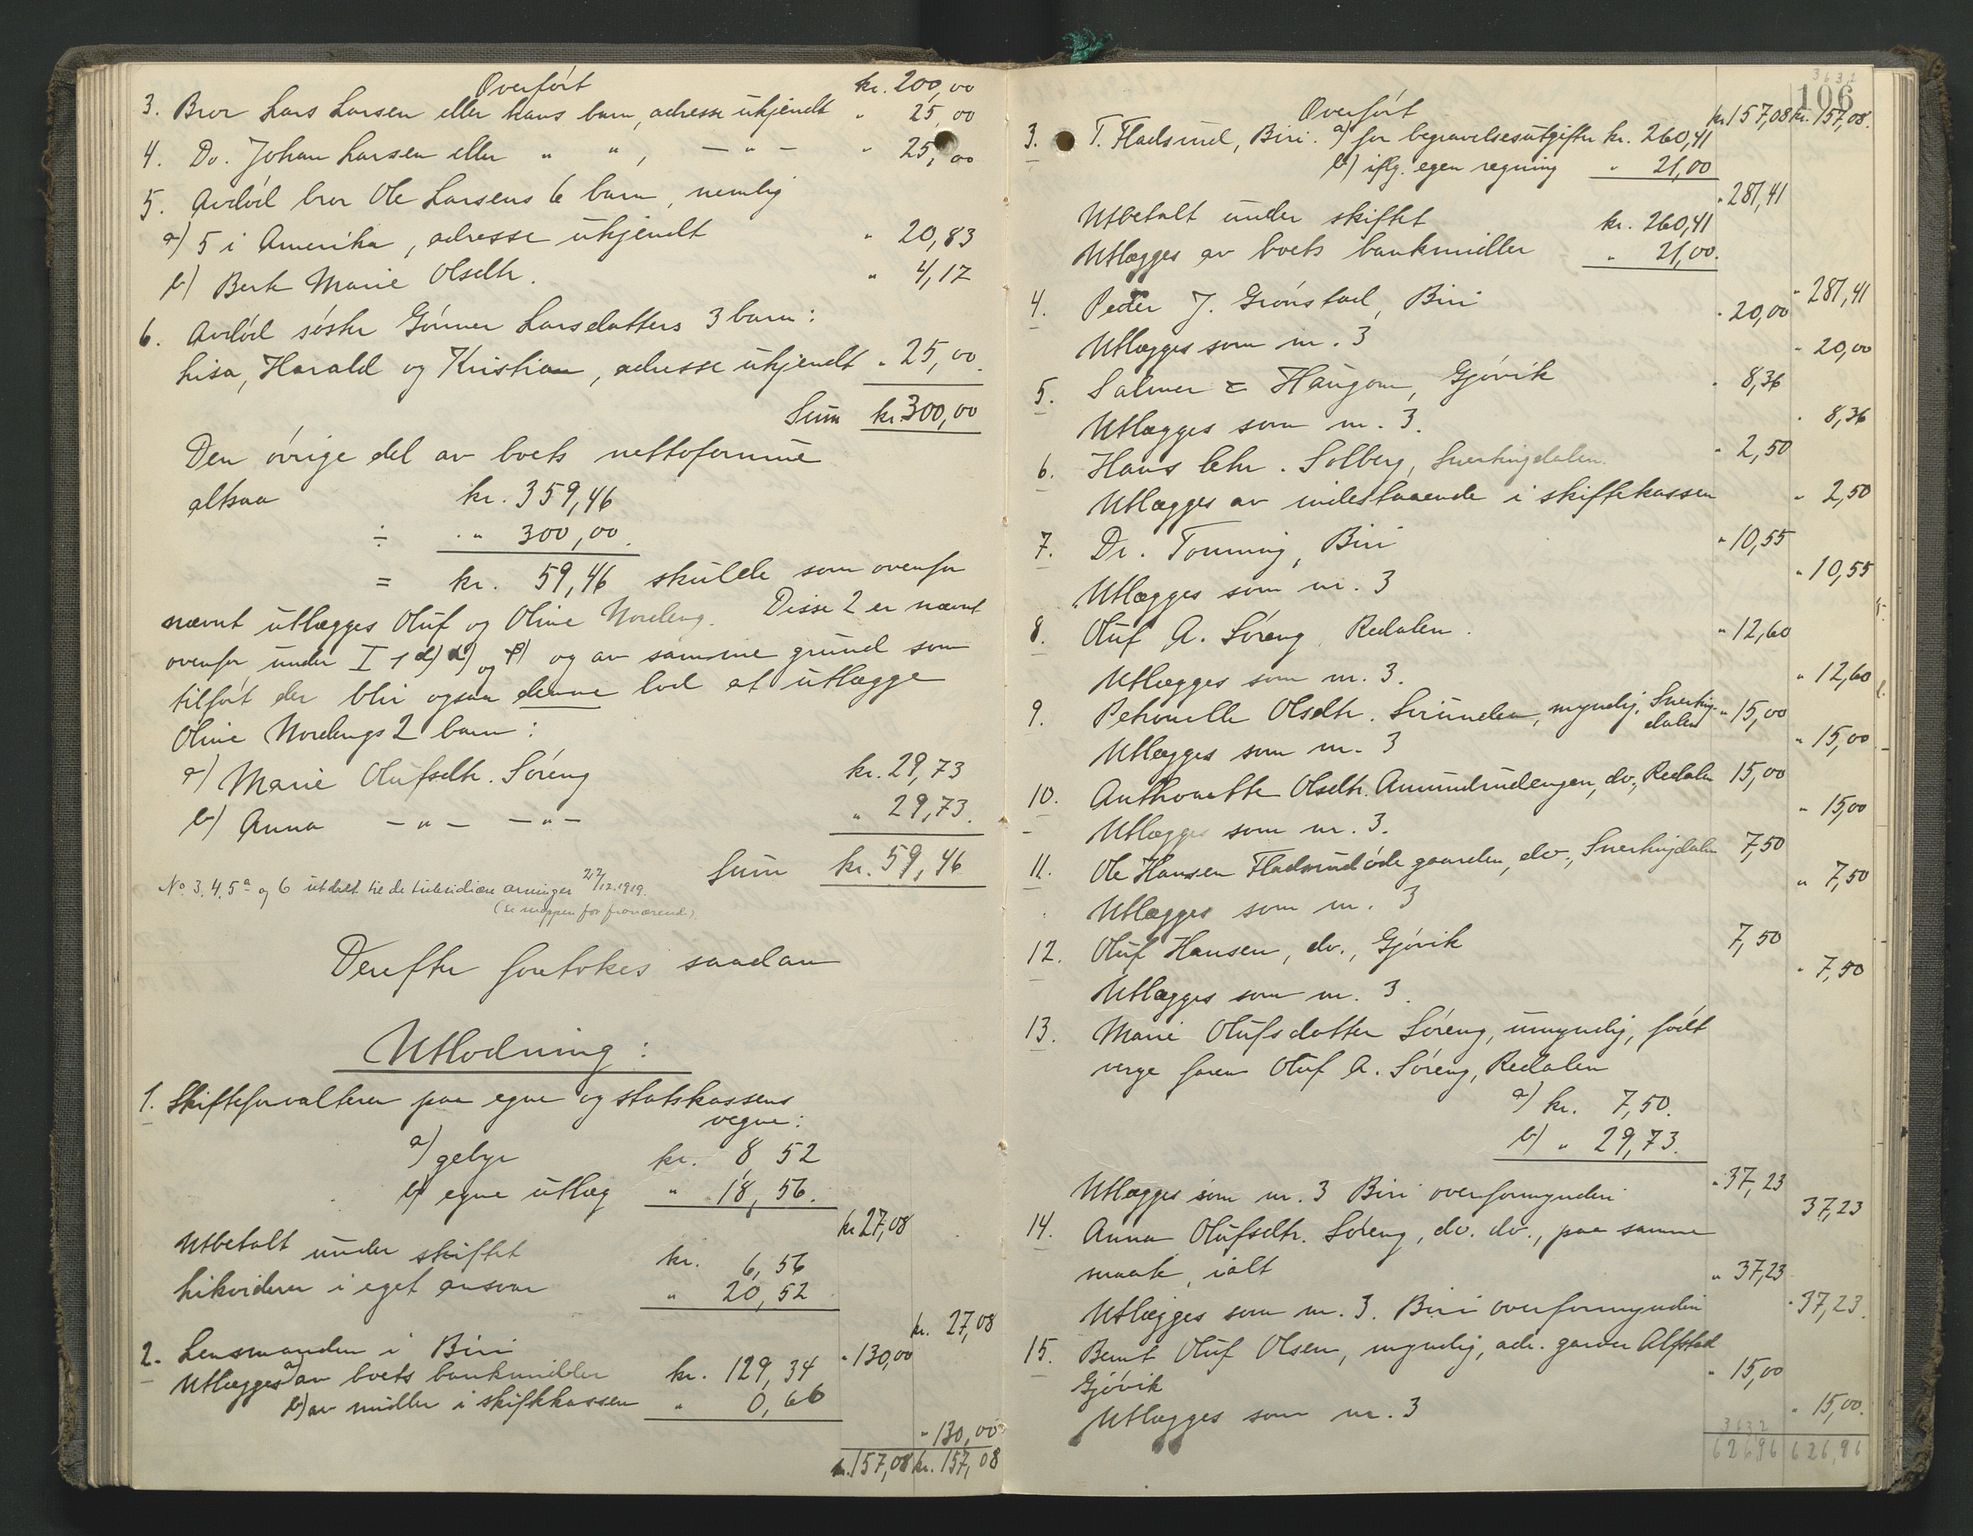 Overført kr. 200,00
3. Bror Lars Larsen eller hans barn, adresse ukjendt " 25,00
4. Do. Johan Larsen eller " " , — " — " 25,00
5. Avdød bror Ole Larsens 6 barn, nemlig
a) 5 i Amerika, adresse ukjendt " 20,83
b) Berte Marie Olsdtr. " 4,17
6. Avdød søster Gønner Larsdatters 3 barn:
Lisa, Harald og Kristian, adresse ukjendt " 25,00.
Sum kr. 300,00
Den øvrige del av boets nettoformue
altsaa kr. 359,46
÷ " 300,00.
= kr. 59,46 skulde som ovenfor
nævnt utlægges Oluf og Oline Nordeng. Disse 2 er nævnt
ovenfor under I 1 d) α) og β) og av samme grund som
tilført der blir ogsaa denne lod at utlægge
Oline Nordengs 2 barn:
a) Marie Olufsdtr. Søreng kr. 29,73
b) Anna — " — — " — " 29,73.
Sum kr. 59,46
No 3, 4, 5a og 6 utdelt til de subsidiære arvinger 22/12.1919.
(se mappen for fraværend.)
Derefter foretokes saadan
Utlodning:
1. Skifteforvalteren paa egne og statskassens
vegne:
a) gebyr kr. 8 52
b) egne utlæg " 18,56.
kr. 27,08
Utbetalt under skiftet kr. 6,56
Likviderer i eget ansvar " 20,52
kr. 27,08
2. Lensmanden i Biri " 130,00
Utlægges a) av boets bankmidler kr. 129,34
b) av midler i skiftekassen " 0,66
" 130,00
kr. 157,08 kr. 157,08
3632
106
Overført kr. 157,08 kr. 157,08.
3. T. Fladsrud, Biri. a) for begravelsesutgifter kr. 260,41
b) iflg. egen regning " 21,00
" 281,41
Utbetalt under skiftet kr. 260,41
Utlægges av boets bankmidler " 21,00.
" 281,41
4. Peder J. Grønstad, Biri " 20,00
Utlægges som nr. 3 " 20,00
5. Salmer & Haugom, Gjøvik " 8,36
Utlægges som nr. 3. " 8,36
6. Hans Chr. Solberg, Snertingdalen. " 2,50
Utlægges av indestaaende i skiftekassen " 2,50
7. Dr. Tonning, Biri " 10,55
Utlægges som nr. 3 " 10,55
8. Oluf A. Søreng, Redalen. " 12,60
Utlægges som nr. 3. " 12,60
9. Petronelle Olsdtr. Sveunden, myndig, Snertingdalen " 15,00
Utlægges som nr. 3 " 15,00
10. Anthonette Olsdtr. Amundrudengen, do., Redalen 15,00
Utlægges som nr. 3. " 15,00
11. Ole Hansen Fladsrudødegaarden, do., Snertingdalen 7,50
Utlægges som nr. 3 " 7,50
12. Oluf Hansen, do., Gjøvik 7,50
Utlægges som nr. 3. " 7,50
13. Marie Olufsdatter Søreng, umyndig, født
verge faren Oluf A. Søreng, Redalen
a) kr. 7,50.
b) " 29,73.
" 37,23
Utlægges som nr. 3 Biri overformynderi 37,23
14. Anna Olufsdtr. Søreng, do. do., paa samme
maate, ialt " 37,23
Utlægges som nr. 3. Biri overformynderi " 37,23.
15. Bernt Oluf Olsen, myndig, adr. garver Alfstad
Gjøvik " 15,00
Utlægges som nr. 3 " 15,00.
3632
626,96 626,96